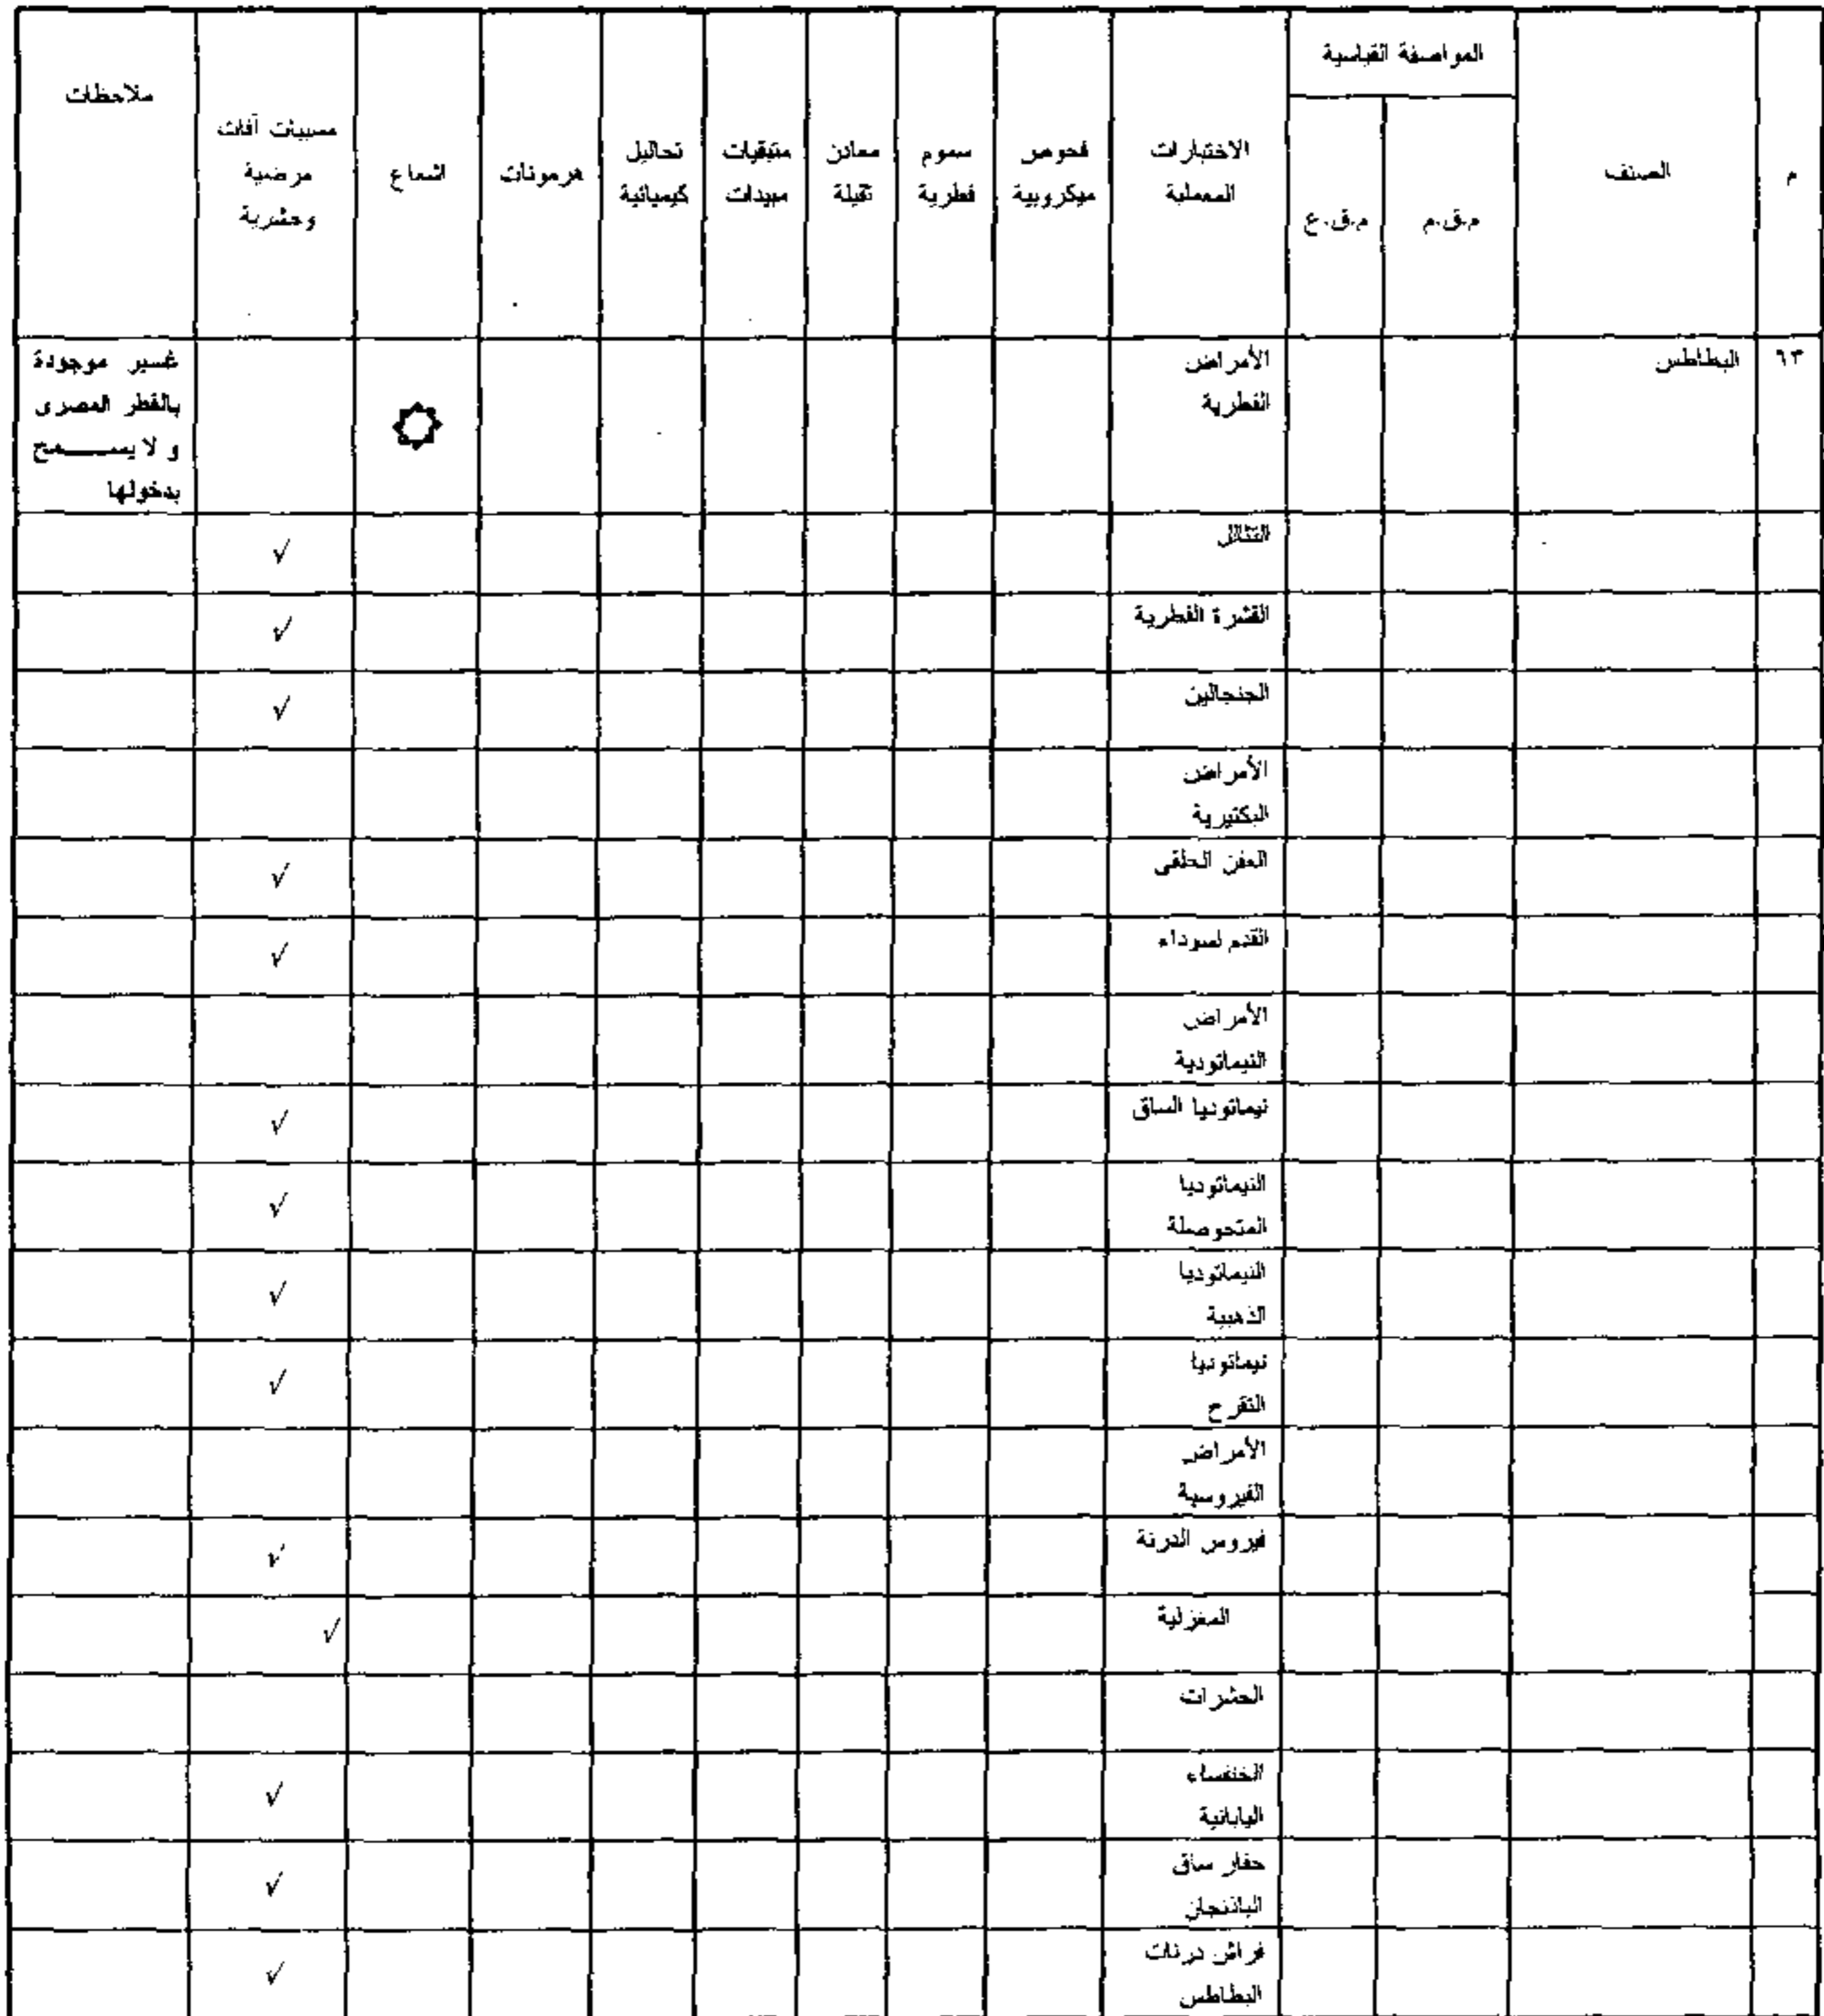 م
الصنف
المواصفة القياسية
م.ق.م
م.ق.ع
الاختبارات
المعملية
فحوص
ميكروبية
سموم
فطرية
معادن
ثقيلة
متبقيات
مبيدات
تحاليل
كيميائية
هرمونات
اشعاع
مسببات آفات
مرضية
وحشرية
ملاحظات
٦٣
البطاطس
الأمراض
الفطرية
غير موجودة
بالقطر المصرى
و لا يسمح
بدخولها
التثالل
√
القشرة الفطرية
√
الجنجالين
√
الأمراض
البكتيرية
العفن الحلقى
√
القدم لسوداء
√
الأمراض
النيماتودية
نيماتوديا الساق
√
النيماتوديا
المتحوصلة
√
النيماتوديا
الذهبية
√
نيماتوديا
التقرح
√
الأمراض
الفيروسية
فيروس الدرنة
√
المغزلية
√
الحشرات
الخنفساء
اليابانية
√
حفار ساق
الباذنجان
√
فراش درنات
البطاطس
√